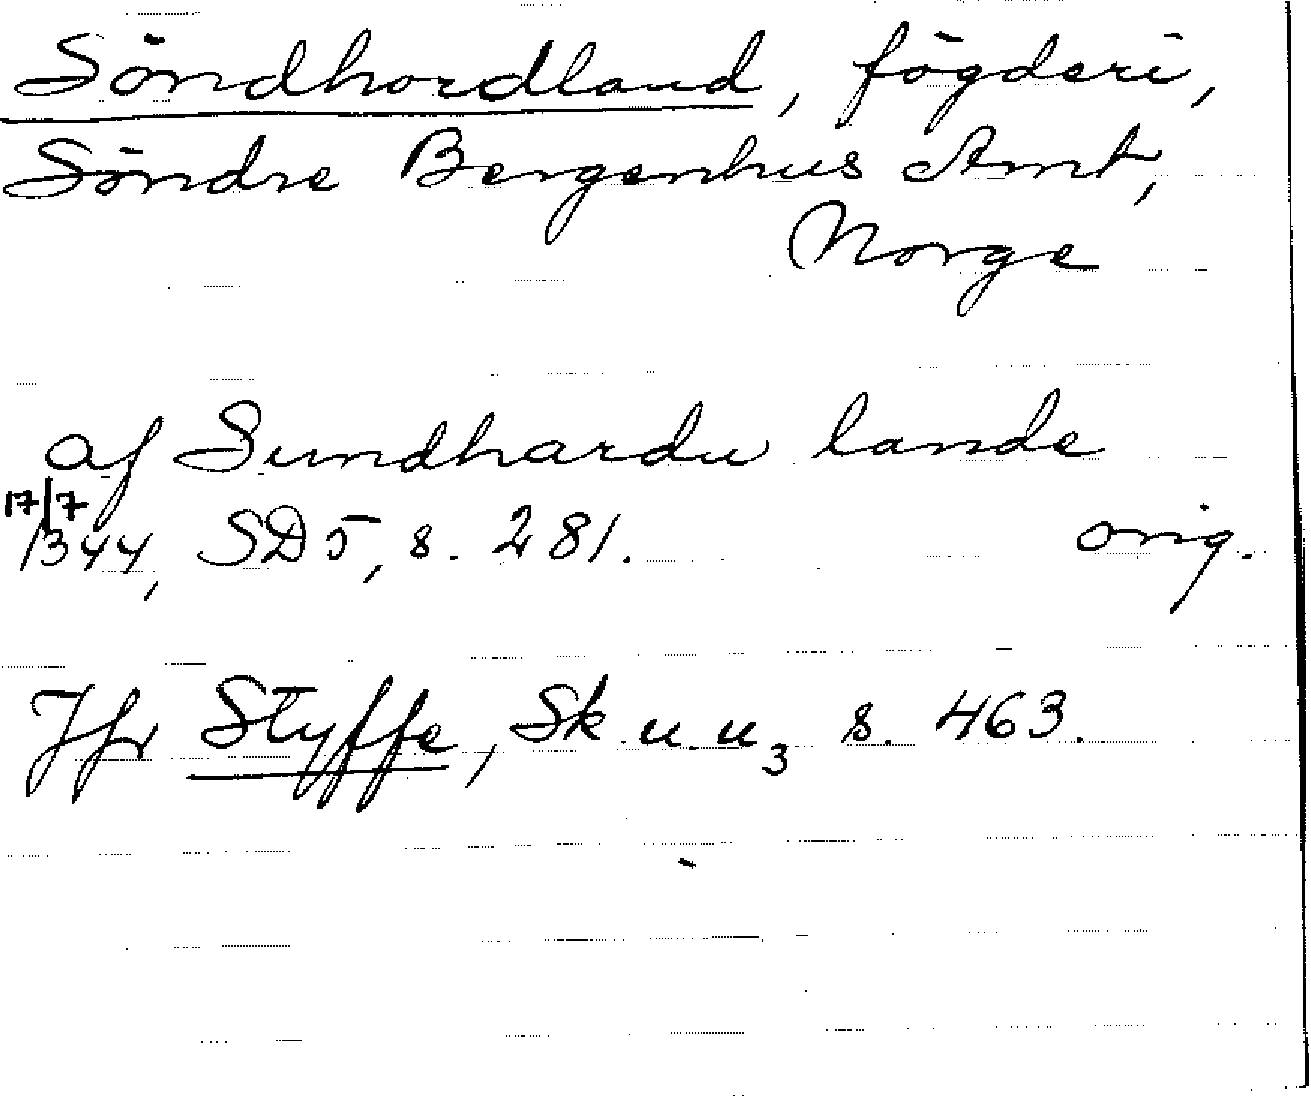 Söndhordland, fögderi,
Söndre Bergenhus Amt,
Norge
af Sundhardu lande
17/7
1344, SD 5, s. 281. orig.
Jfr Styffe, Sk u. u3 s. 463.